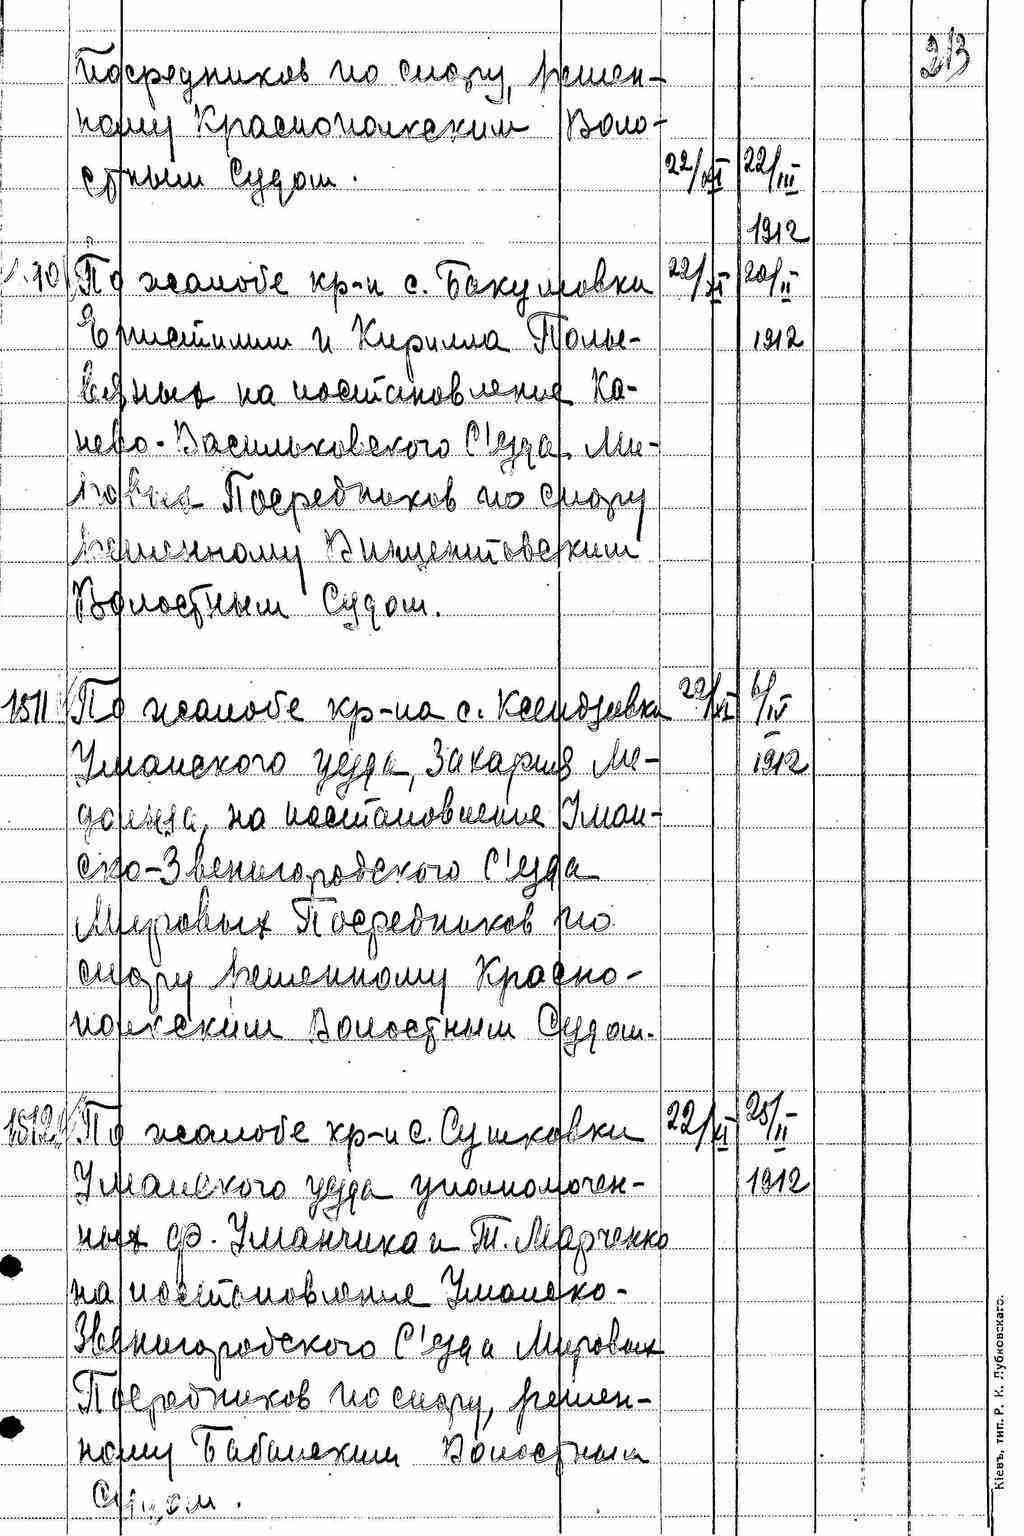 213
Посредников по спору, решен-
ному Краснопольским Воло-
стным Судом. 22/XI 22/III
1912
10 По жалобе кр-н с. Бакумовки 22/XI 20/II
и Кирилла Полье- 1912
на постановление Ка-
нево-Васильковского С'езда Ми-
ровых Посредников по спору
решенному
Волостным Судом.
1511 По жалобе кр-на с. Ксендзовки 22/XI 6/IV
Уманского уезда, Захария Ме- 1912
на постановление Уман-
ско-Звенигородского С'езда
Мировых Посредников по
спору решенному Красно-
польским Волостным Судом.
1512 По жалобе кр-н с. Сушковки 22/XI 25/II
Уманского уезда уполномочен- 1912
ных Ф. Уманчика и Т. Марченко
на постановление Уманско-
Звенигородского С'езда Мировых
Посредников по спору, решен-
ному Бабанским Волостным
Судом.
Кіевъ, тип. Р. К. Лубковскаго.